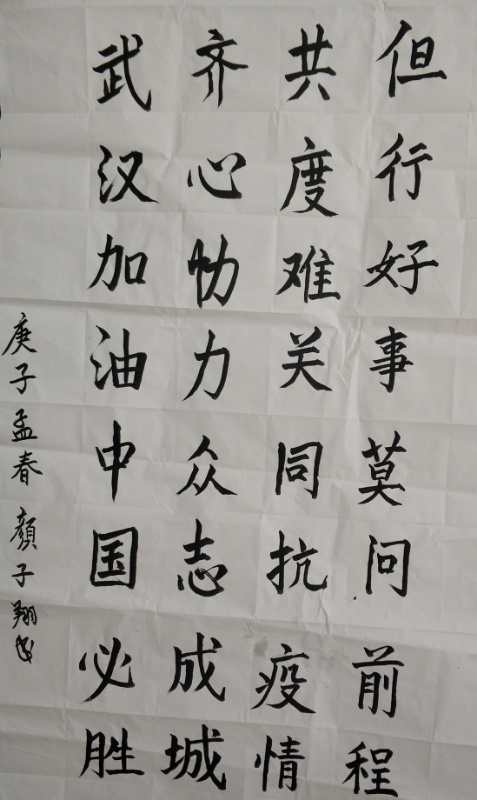 但行好事莫问前程
共度难关同抗疫情
齐心协力众志成城
武汉加油中国必胜
庚子孟春颜子翔书